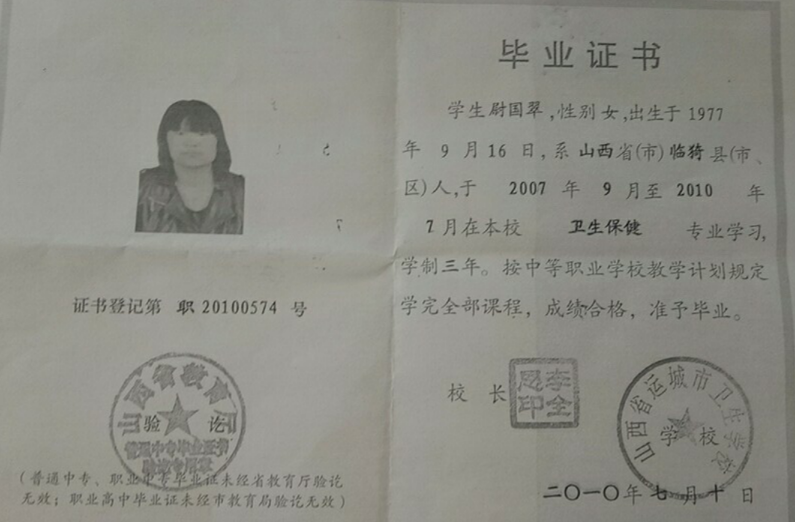 证书登记第 职20100574 号
山西省教育厅
验讫
普通中专毕业证书
验讫专用章
(普通中专、职业中专毕业证未经省教育厅验讫
无效;职业高中毕业证未经市教育局验讫无效)
毕业证书
学生尉国翠,性别女,出生于1977
年 9 月16 日,系 山西省(市)临猗县(市、
区)人,于 2007 年 9 月至 2010 年
7 月在本校 卫生保健 专业学习,
学制三年。按中等职业学校教学计划规定
学完全部课程,成绩合格,准予毕业。
校 长
山西省运城市卫生学校
学 校
二〇一〇年 七 月 十 日